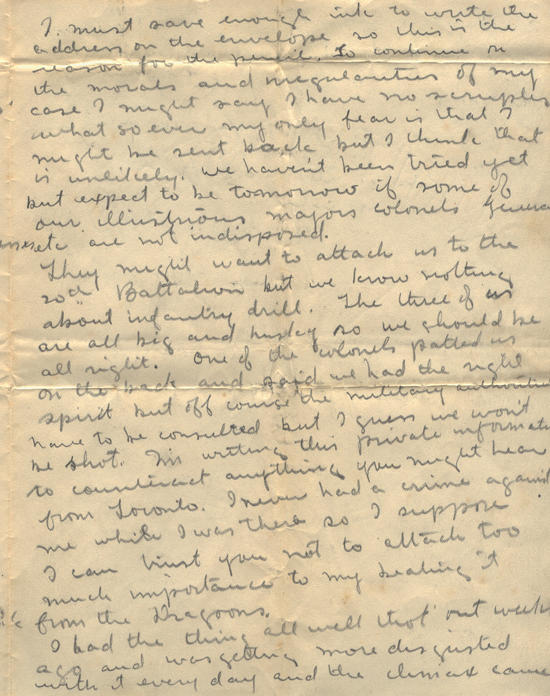 I must save enough ink to write the
address on the envelope so this is the
reason for the pencil. To continue on
the morals and irregularities of my
case I might say I have no scruples
what so ever my only fear is that I
might be sent back but I think that
is unlikely. We haven't been tried yet
but expect to be tomorrow if some of
our illustrious majors colonels
etc are not indisposed.
They might want to attach us to the
20th Battalion but we know nothing
about infantry drill. The three of us
are all big and husky so we should be
all right. One of the colonels patted us
on the back and said we had the right
spirit but off course the military
have to be consulted but I guess we won't
be shot. I'm writing this private
to counteract anything you might hear
from Toronto. I never had a crime against
me while I was there so I suppose
I can trust you not to attach too
much importance to my beating it
from the Dragoons.
I had the thing all well thot out weeks
ago and was getting more disgusted
with it every day and the climax came